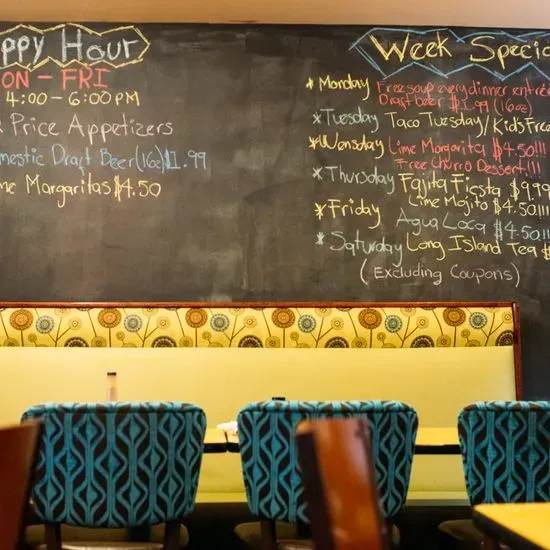 ppy Hour
ON - FRI
4:00 - 6:00 PM
Price Appetizers
mestic Draft Beer (16oz) $1.99
me Margaritas $4.50
Week Specia
* Monday Free soup every dinner entrée
Draft beer $1.99 (16oz)
* Tuesday Taco Tuesday / Kids Free
* Wonsday Lime Margarita $4.50!!!
Free Churro Dessert!!!
* Thursday Fajita Fiesta $9.99
Lime Mojito $4.50!!!
* Friday Agua Loca $4.50!!!
* Saturday Long Island Tea $
(Excluding Coupons)